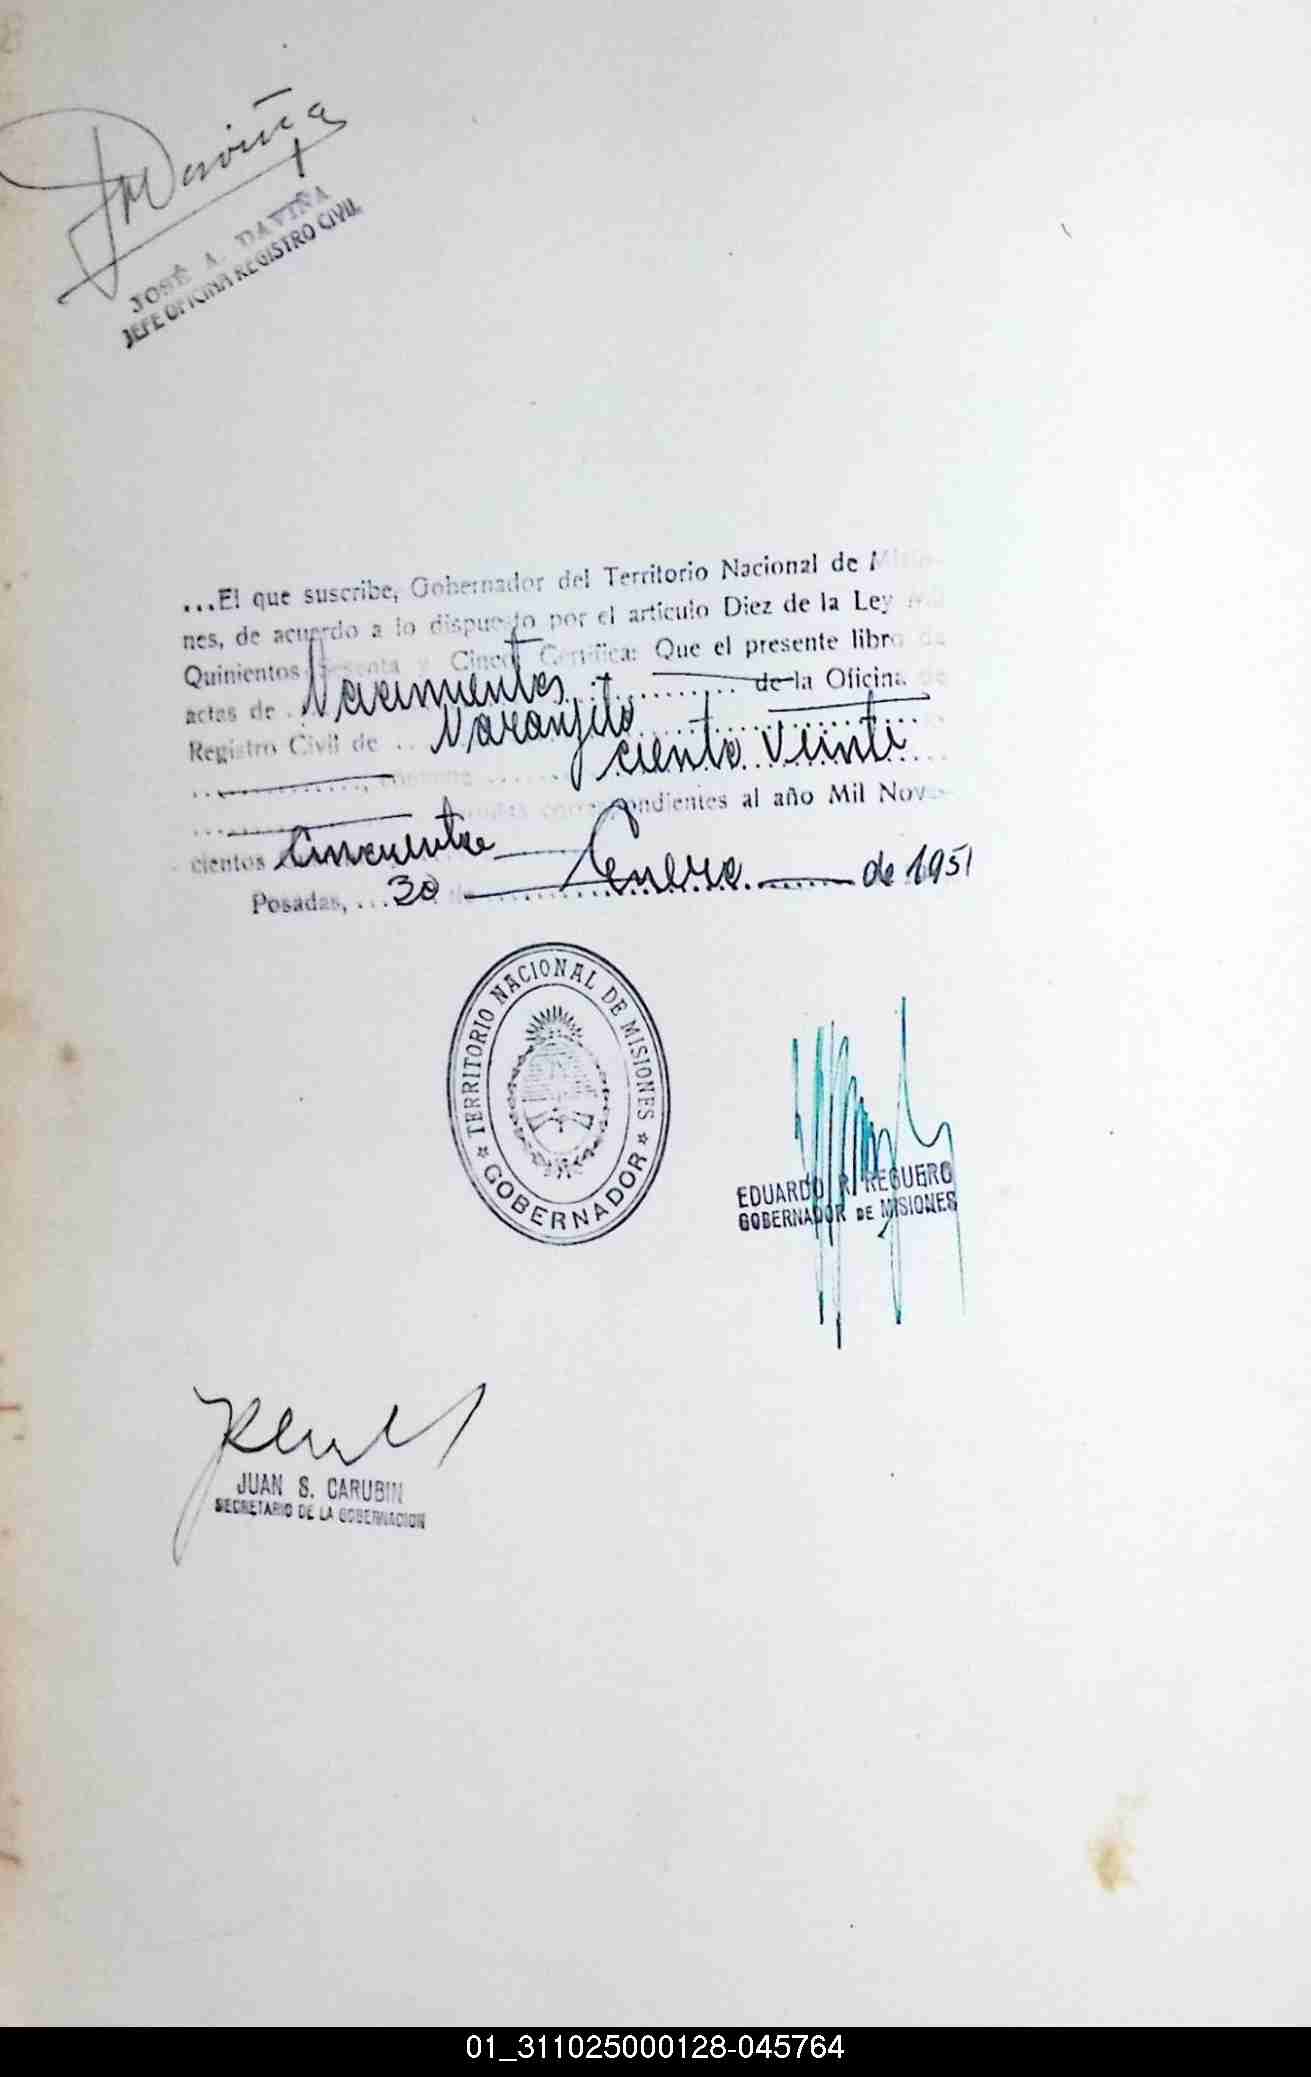 JDaviña
JOSÉ A. DAVIÑA
JEFE OFICINA REGISTRO CIVIL
...El que suscribe, Gobernador del Territorio Nacional de Misio-
nes, de acuerdo a lo dispuesto por el artículo Diez de la Ley Mil
Quinientos Sesenta y Cinco Certifica: Que el presente libro de
actas de Nacimientos de la Oficina de
Registro Civil de Naranjito
contiene ciento Veinte
correspondientes al año Mil Nove-
cientos Cincuenta
Posadas, 30 de Enero de 1951
TERRITORIO NACIONAL DE MISIONES
GOBERNADOR
EDUARDO R. REGUERO
GOBERNADOR DE MISIONES
JUAN S. CARUBIN
SECRETARIO DE LA GOBERNACION
01_311025000128-045764